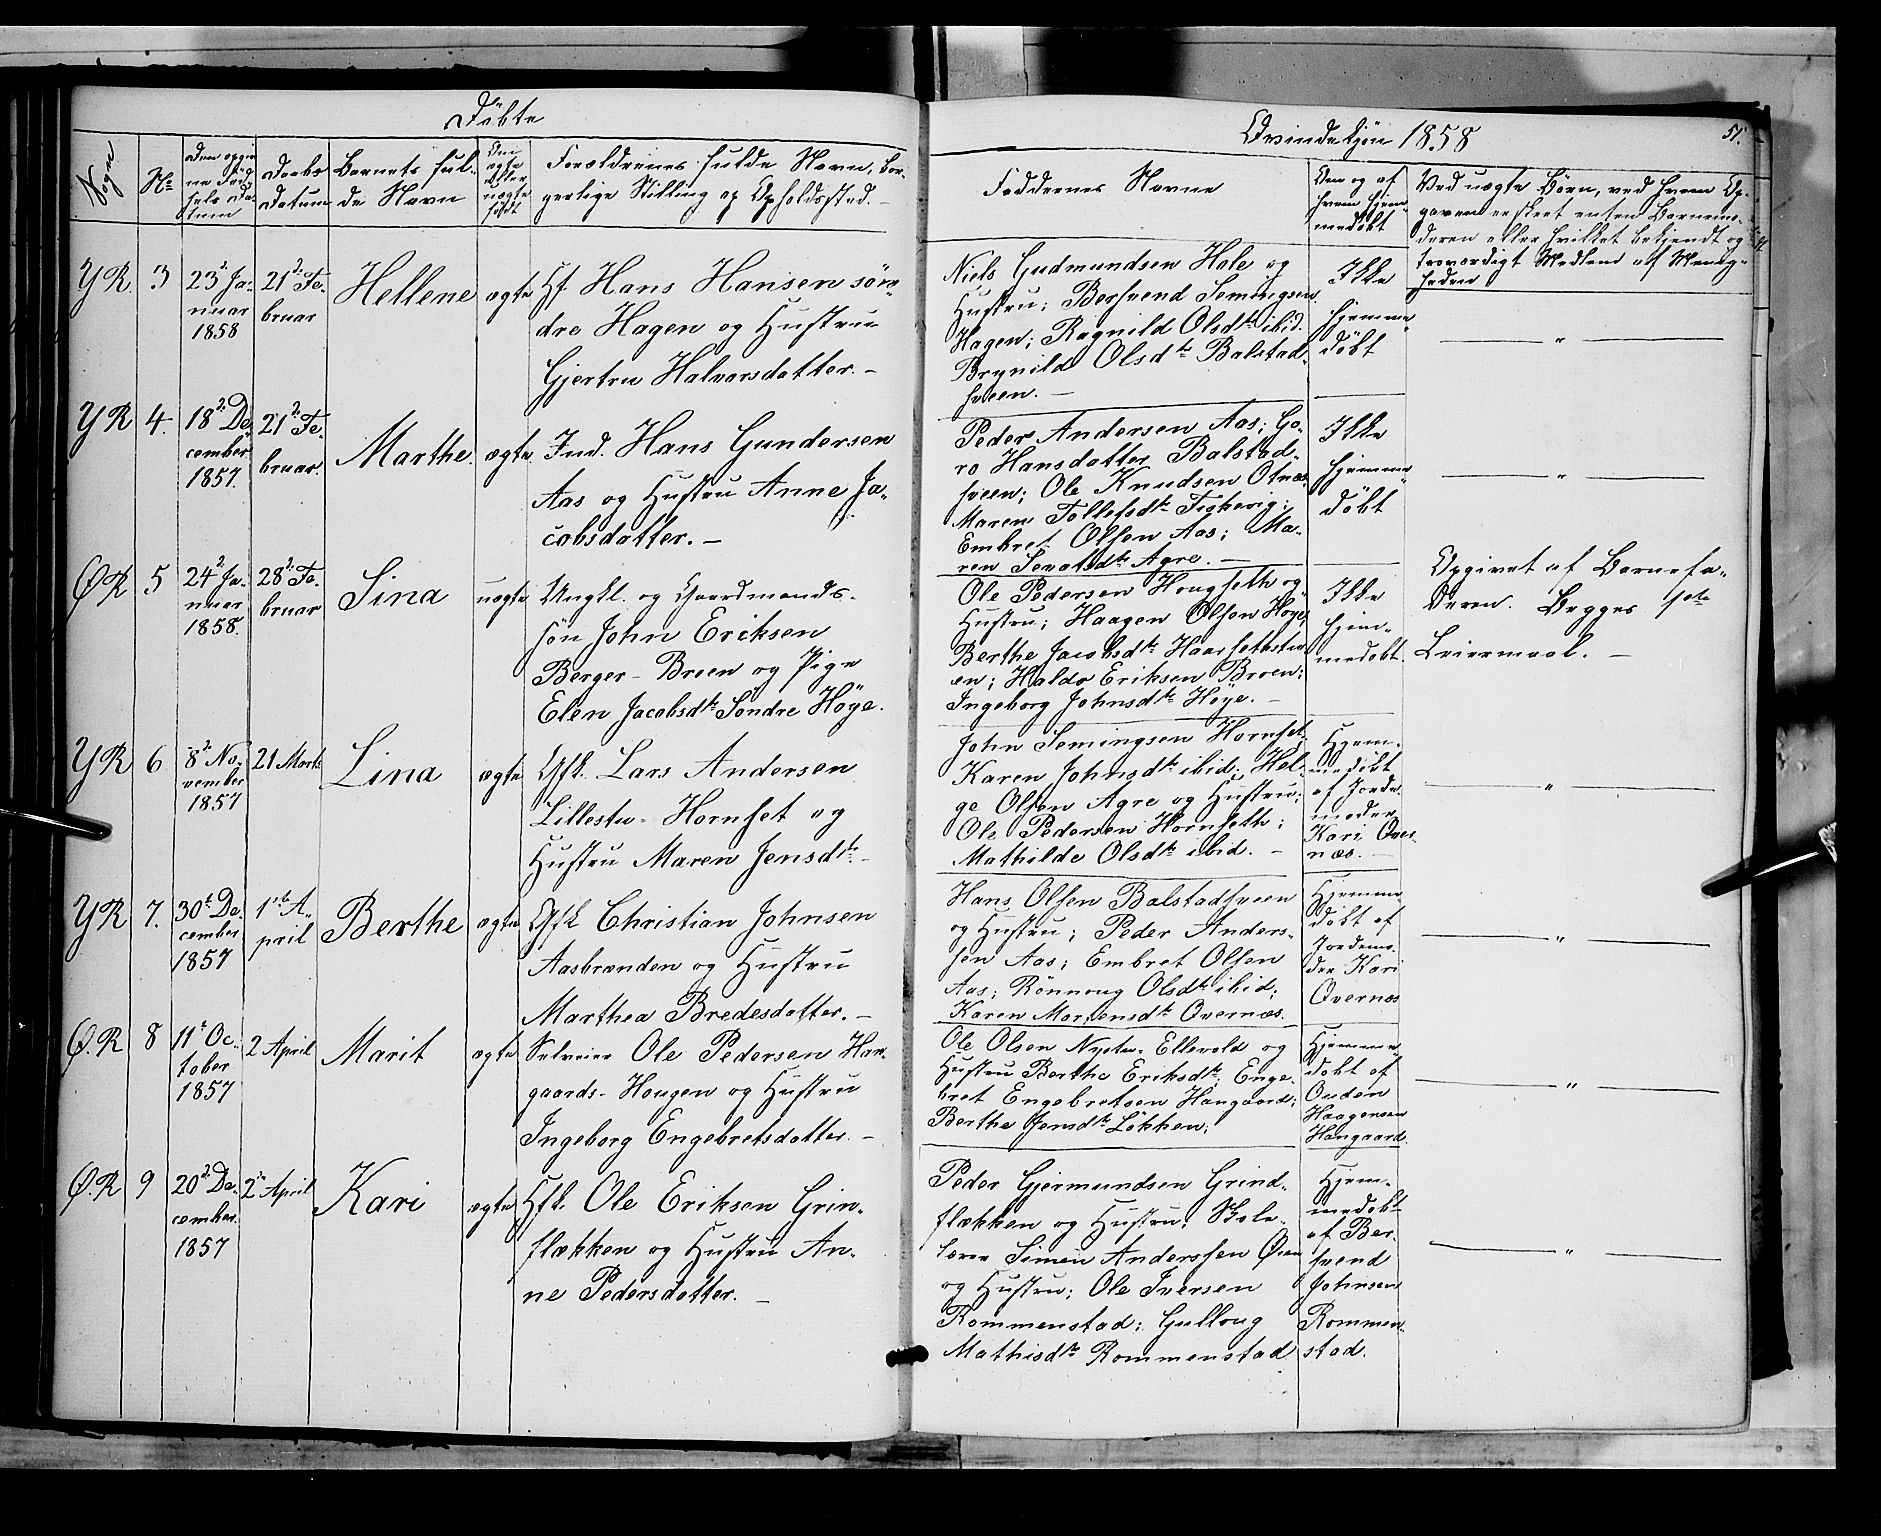 Döbte
Qvindekjön 1858
51.
Sogne
No
Den opgiv-
ne Föd-
sels Da-
tum
Daabs
Datum
Barnets ful-
de Navn
Om
ægte
eller
uægte
født
Forældrenes fulde Navn, bor-
gerlige Stilling og Opholdssted.
Faddernes Navne
Om og af
hvem hjem-
medöbt
Ved uægte Börn, ved hvem Op-
gaven er skeet enten Barnemo-
deren eller hvilket bekjendt og
troværdigt Medlem af Menig-
heden
YR. 3
23de Ja-
nuar
1858
21de Fe-
bruar
Hellene
ægte
Hf. Hans Hansen sön-
dre Hagen og Hustru
Gjertru Halvorsdatter. –
Niels Gudmundsen Hole og
Hustru; Bersvend Semingsen
Hagen; Ragnild Olsdtr ibid.
Brynild Olsdtr Balstad-
sveen. –
Ikke
hjemme-
döbt
YR 4.
18de De-
cember
1857.
21de Fe-
bruar.
Marthe.
ægte.
Ind. Hans Gundersen
Aas og Hustru Anne Ja-
cobsdatter. –
Peder Andersen Aas; Go-
ro Hansdatter Balstad-
sveen; Ole Knudsen Otnæs
Maren Tollefsdtr Fiskevig;
Embret Olsen Aas; Ma-
ren Agre. –
Ikke
hjemme-
döbt
ØR 5
24de Ja-
nuar
1858.
28de Fe-
bruar
Sina
uægte
Ungkl. og Gaardmands-
sön John Eriksen
Berger-Broen og Pige
Elen Jacobsdtr Söndre Höye.
Ole Pedersen Hougseth og
Hustru; Haagen Olsen Höye;
Berthe Jacobsdtr Haarsethstu-
en; Haldo Eriksen Broen;
Ingeborg Johnsdtr Höye. –
Ikke
hjem-
medöbt.
Opgivet af Barnefa-
deren. Begges 1ste
Leiermaal. –
YR 6
8de No-
vember
1857
21 Marts
Lina
ægte
Gfk. Lars Andersen
Lillestu-Hornset og
Hustru Maren Jensdtr –
John Semingsen Hornset;
Karen Johnsdtr ibid; Hel-
ge Olsen Agre og Hustru;
Ole Pedersen Hornseth;
Mathilde Olsdtr ibid. –
Hjem-
medöbt
af Jorde-
moder
Kari Øver-
næs. –
YR 7.
30te De-
cember
1857
1ste A-
pril
Berthe
ægte
Gfk Christian Johnsen
Aasbrænden og Hustru
Marthea Bredesdatter. –
Hans Olsen Balstadsveen
og Hustru; Peder Anders-
sen Aas; Embret Olsen
Aas; Rönnoug Olsdtr ibid;
Karen Mortensdtr Øvernæs.
Hjemme-
döbt af
Jordemo-
der Kari
Øvernæs
Ø.R 8
11te Oc-
tober
1857
2 April
Marit
ægte
Selveier Ole Pedersen Han-
gaards-Hougen og Hustru
Ingeborg Engebretsdatter. –
Ole Olsen Nystu-Ellevold og
Hustru Berthe Eriksdtr; Enge-
bret Engebretsen Hangaard;
Berthe Jensdtr Lökken;
Hjemme-
döbt af
Ouden
Haagensen
Hangaard.
Ø.R 9
20de De-
cember.
1857
2de April
Kari
ægte
Hfk. Ole Eriksen Grin-
flækken og Hustru An-
ne Pedersdatter. –
Peder Gjermundsen Grind-
flækken og Hustru; Skole-
lærer Simen Anderssen Øien
og Hustru; Ole Iversen
Rommenstad; Gulloug
Mathisdtr Rommenstad
Hjem-
medöbt
af Ber-
svend
Johnsen
Rommen-
stad.